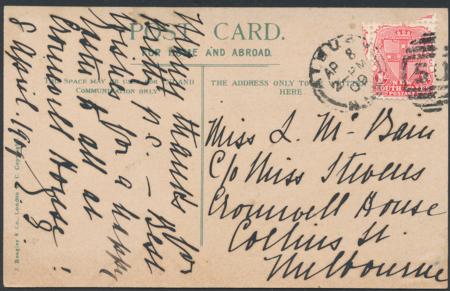 POST CARD.
FOR HOME AND ABROAD.
THE SPACE MAY BE USED FOR INLAND
COMMUNICATION ONLY.
THE ADDRESS ONLY TO
HERE.
Many thanks for
p.c. — Best
wishes for a happy
Easter to all at
Cromwell House!
8 April. 1909
Miss L. McBain
C/o Miss Stevens
Cromwell House
Collins St.
Melbourne
ALBURY
AP 8
PM
09
NEW
SOUTH
POSTAGE